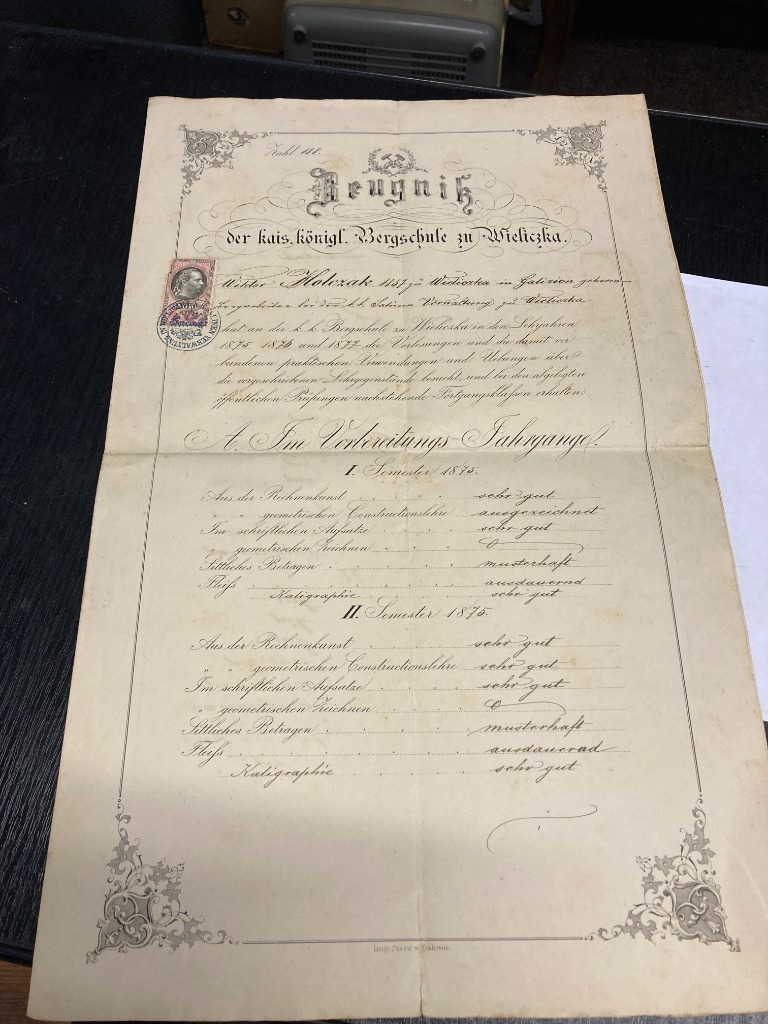 Zahl 148.
Zeugniß
der kais. königl. Bergschule zu Wieliczka.
Wiktor Holczak 1857 zu Wieliczka in Galizien geboren
Bergarbeiter bei der k. k. Salinen Verwaltung zu Wieliczka
hat an der k. k. Bergschule zu Wieliczka in den Lehrjahren
1875 1876 und 1877 die Vorlesungen und die damit ver
bundenen praktischen Anwendungen und Uebungen über
die vorgeschriebenen Lehrgegenstände besucht und bei den abgelegten
öffentlichen Prüfungen nachstehende Fortgangsklassen erhalten:
A. Im Vorbereitungs-Jahrgange.
I. Semester 1875.
Aus der Rechnenkunst sehr gut
" " geometrischen Constructionslehre ausgezeichnet
Im schriftlichen Aufsatze sehr gut
" geometrischen Zeichnen
Sittliches Betragen musterhaft
Fleiß ausdauernd
Kaligraphie sehr gut
II. Semester 1875.
Aus der Rechnenkunst sehr gut
" " geometrischen Constructionslehre sehr gut
Im schriftlichen Aufsatze sehr gut
" geometrischen Zeichnen
Sittliches Betragen musterhaft
Fleiß ausdauernd
Kaligraphie sehr gut